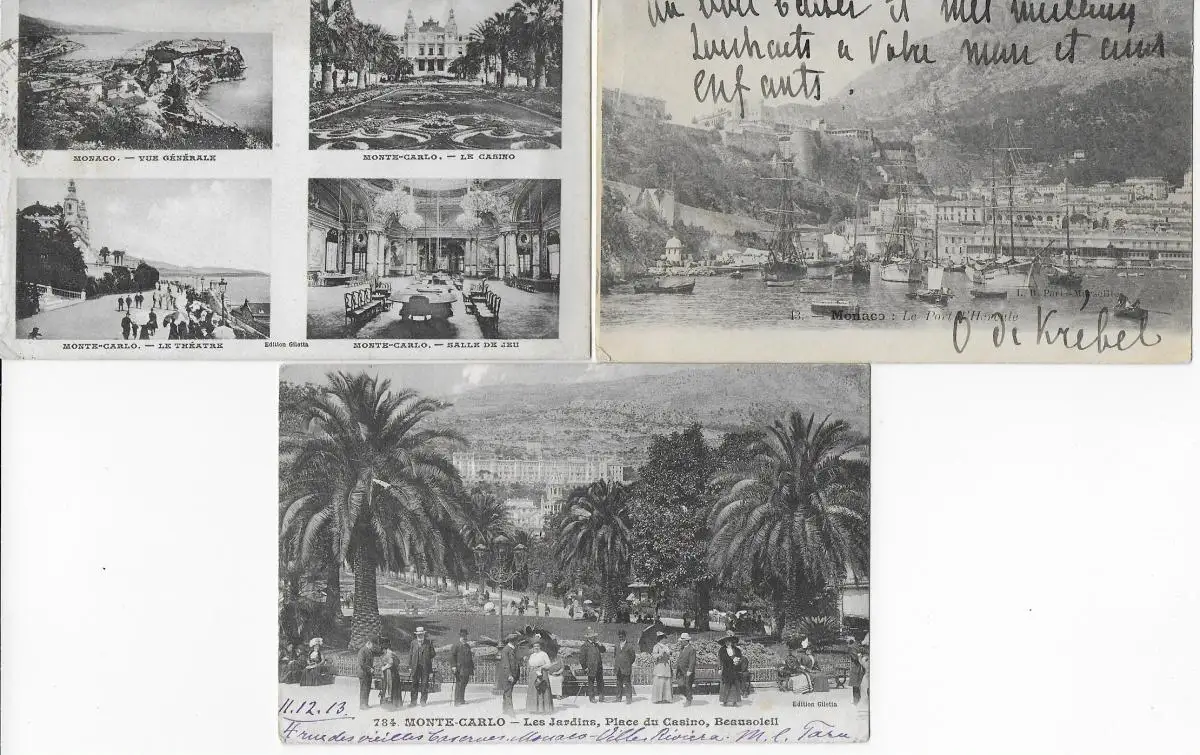 MONACO. — VUE GÉNÉRALE
MONTE-CARLO. — LE CASINO
MONTE-CARLO. — LE THÉATRE
Edition Giletta
MONTE-CARLO. — SALLE DE JEU
un bon baiser et mes meilleurs
souhaits a Votre mari et aux
enfants.
L. P. Paris-Marseille
13. — Monaco : Le Port d'Hercule
O di Krebel
11.12.13.
784. MONTE-CARLO – Les Jardins, Place du Casino, Beausoleil
Edition Giletta
des vieilles Casernes. Monaco - Villa Riviera. M. L.